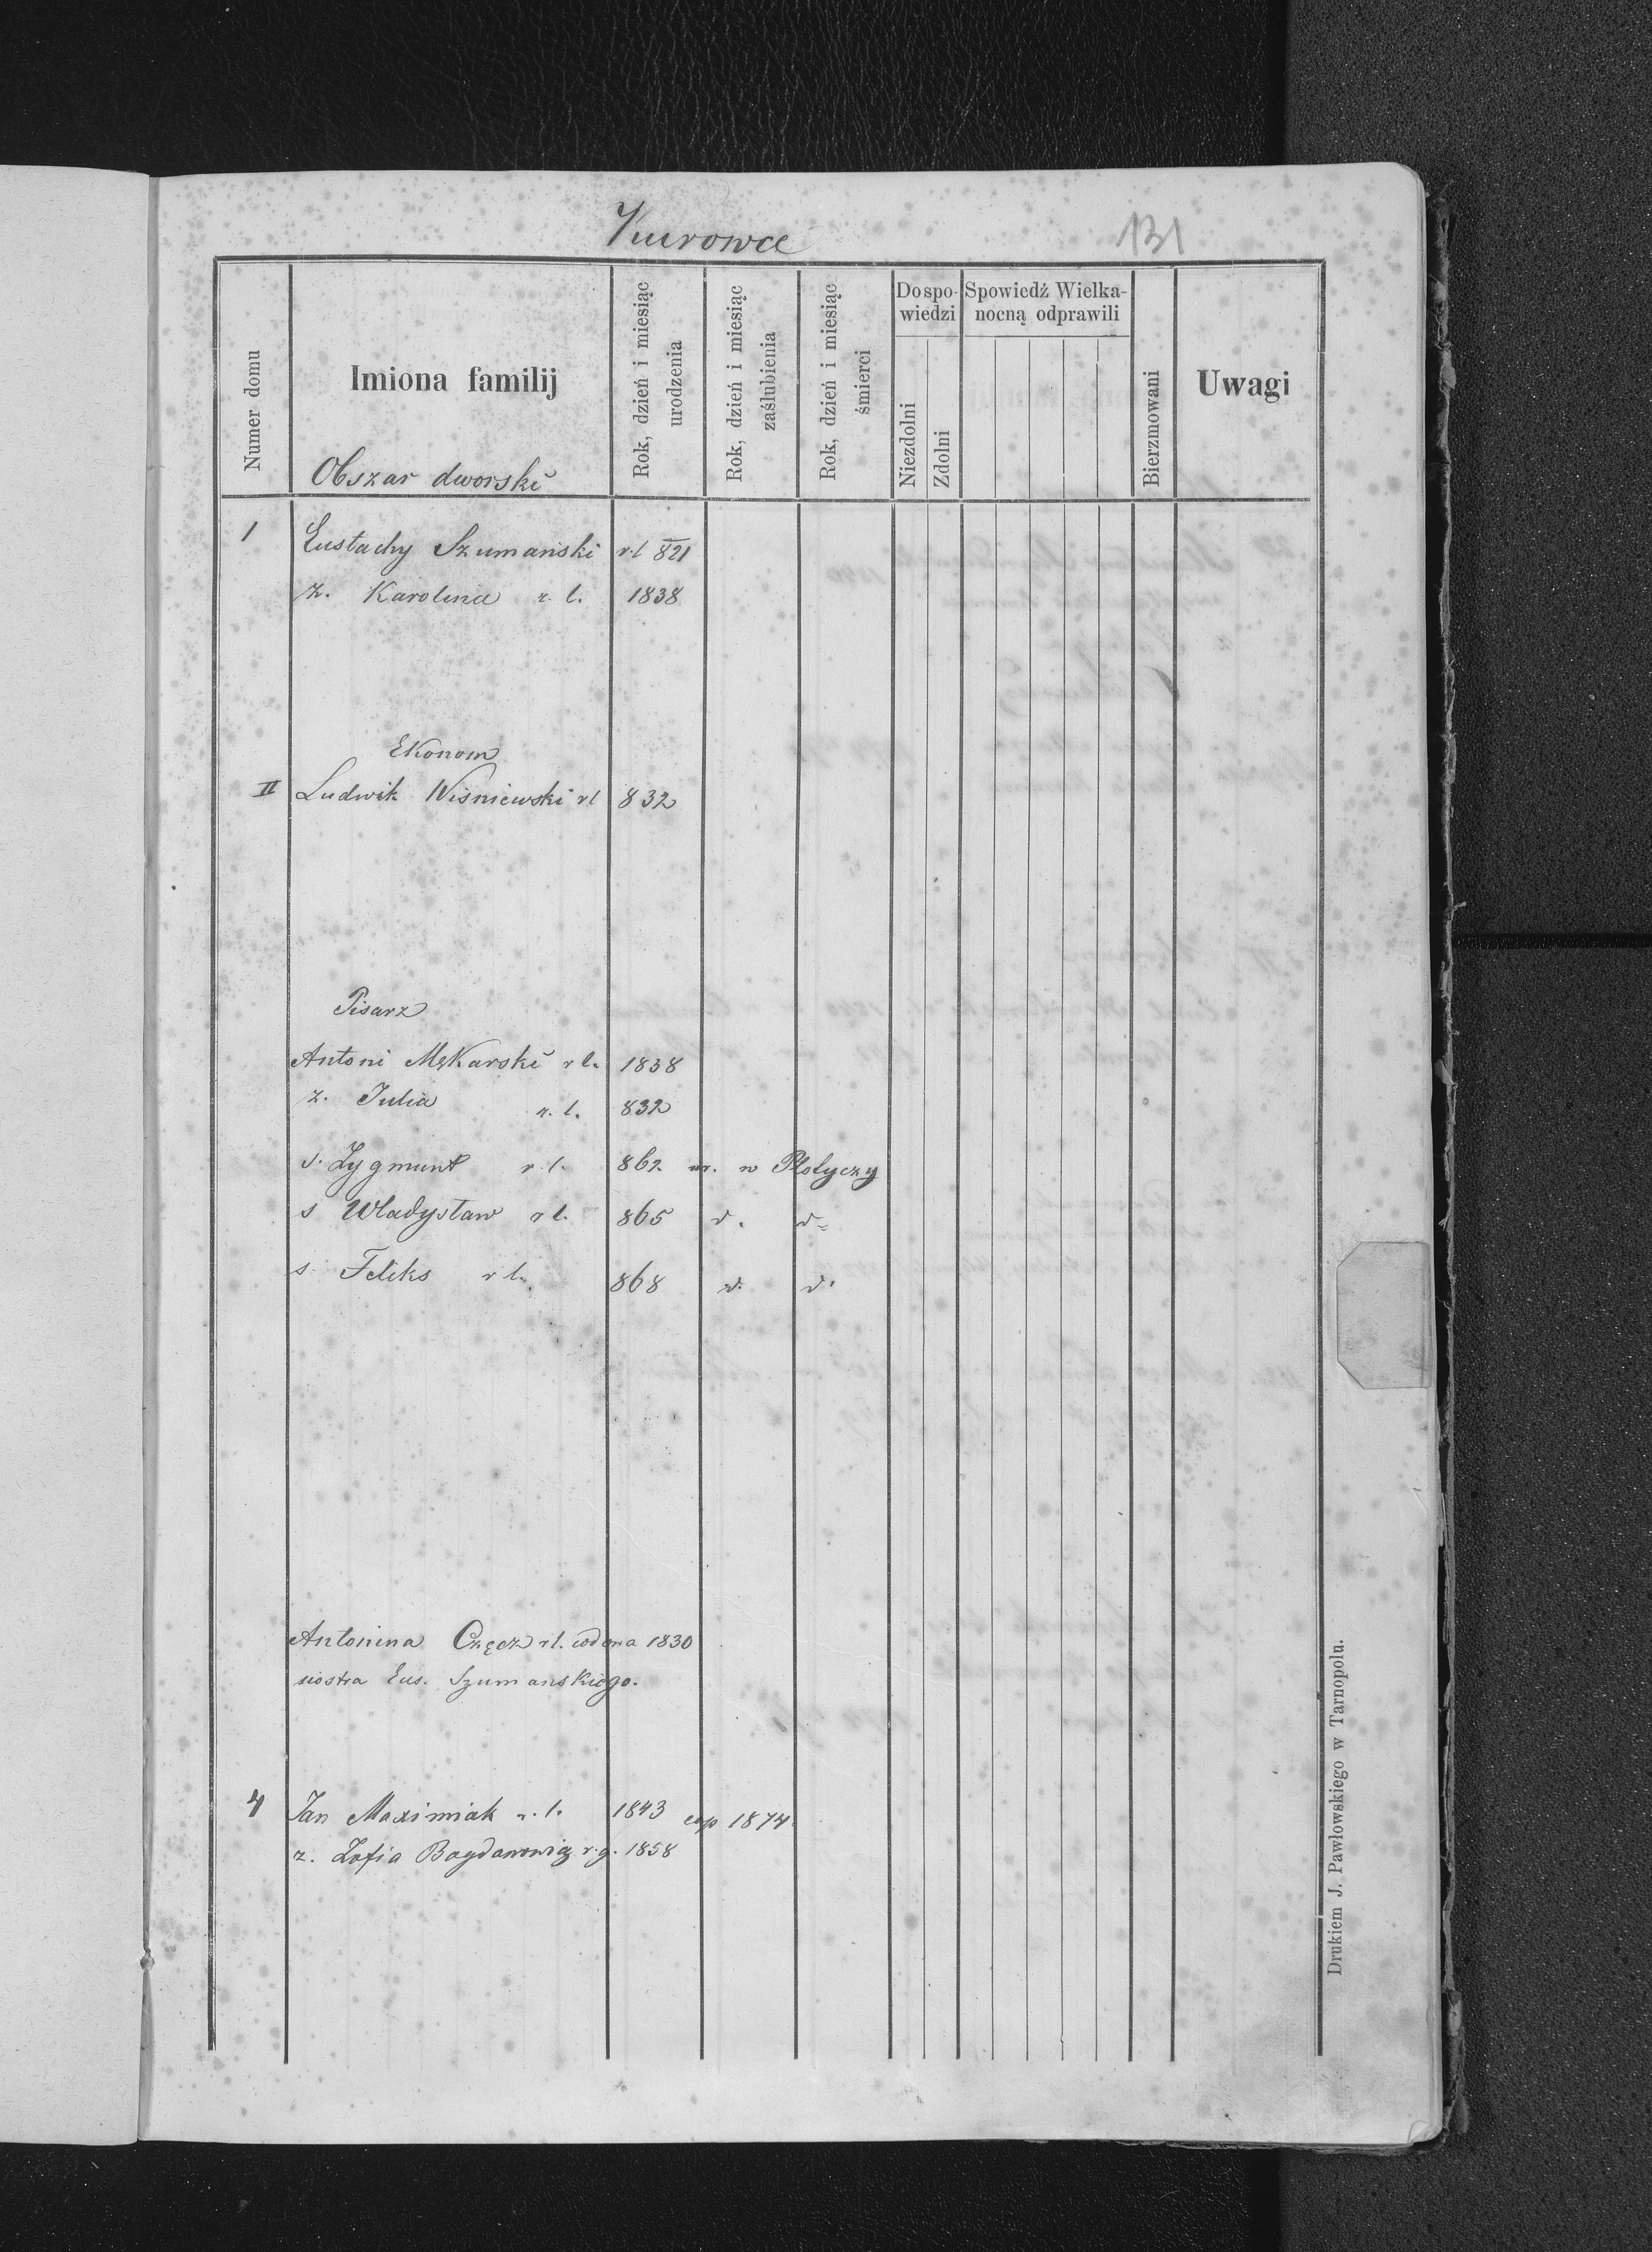 Kurowce
131
Numer domu
Imiona familij
Obszar dworski
Rok, dzień i miesiąc urodzenia
Rok, dzień i miesiąc zaślubienia
Rok, dzień i miesiąc śmierci
Do spo-
wiedzi
Niezdolni
Zdolni
Spowiedź Wielka-
nocną odprawili
Bierzmowani
Uwagi
1 Eustachy Szumański r. l 821
z. Karolina r. l. 1838
Ekonom
II Ludwik Wiśniewski r l 832
Pisarz
Antoni Mękarski r l. 1838
z. Julia r. l. 832
s. Zygmunt r. l. 862 ur. w Płotyczy
s Władysław r l. 865 d. d
s. Feliks r l. 868 d. d.
Antonina r l. wdowa 1830
siostra Eus. Szumańskiego.
4 Jan Maximiak r. l. 1843 cop 1874
z. Zofia Bogdanowicz r. g. 1858
Drukiem J. Pawłowskiego w Tarnopolu.